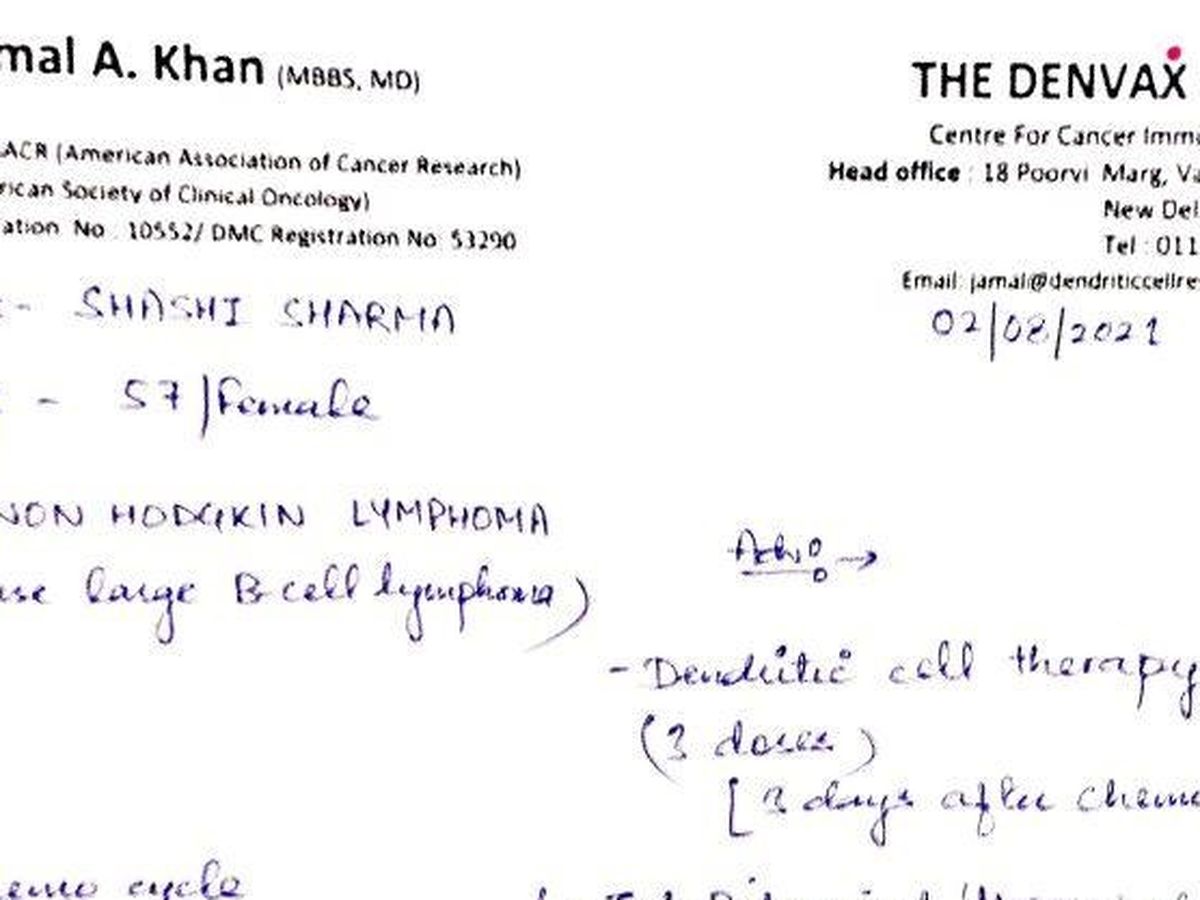 mal A. Khan (MBBS, MD)
ACR (American Association of Cancer Research)
rican Society of Clinical Oncology)
ation No : 10552/ DMC Registration No: 53290
THE DENVAX
Centre For Cancer Immu
Head office : 18 Poorvi Marg, Va
New Del
Tel : 011
Email: jamal@dendriticcellre
02/08/2021
:- SHASHI SHARMA
: - 57/Female
NON HODGKIN LYMPHOMA
use large B-cell lymphoma)
Adv: →
- Dendritic cell therapy
(3 doses)
[3 days after chemo
emo cycle